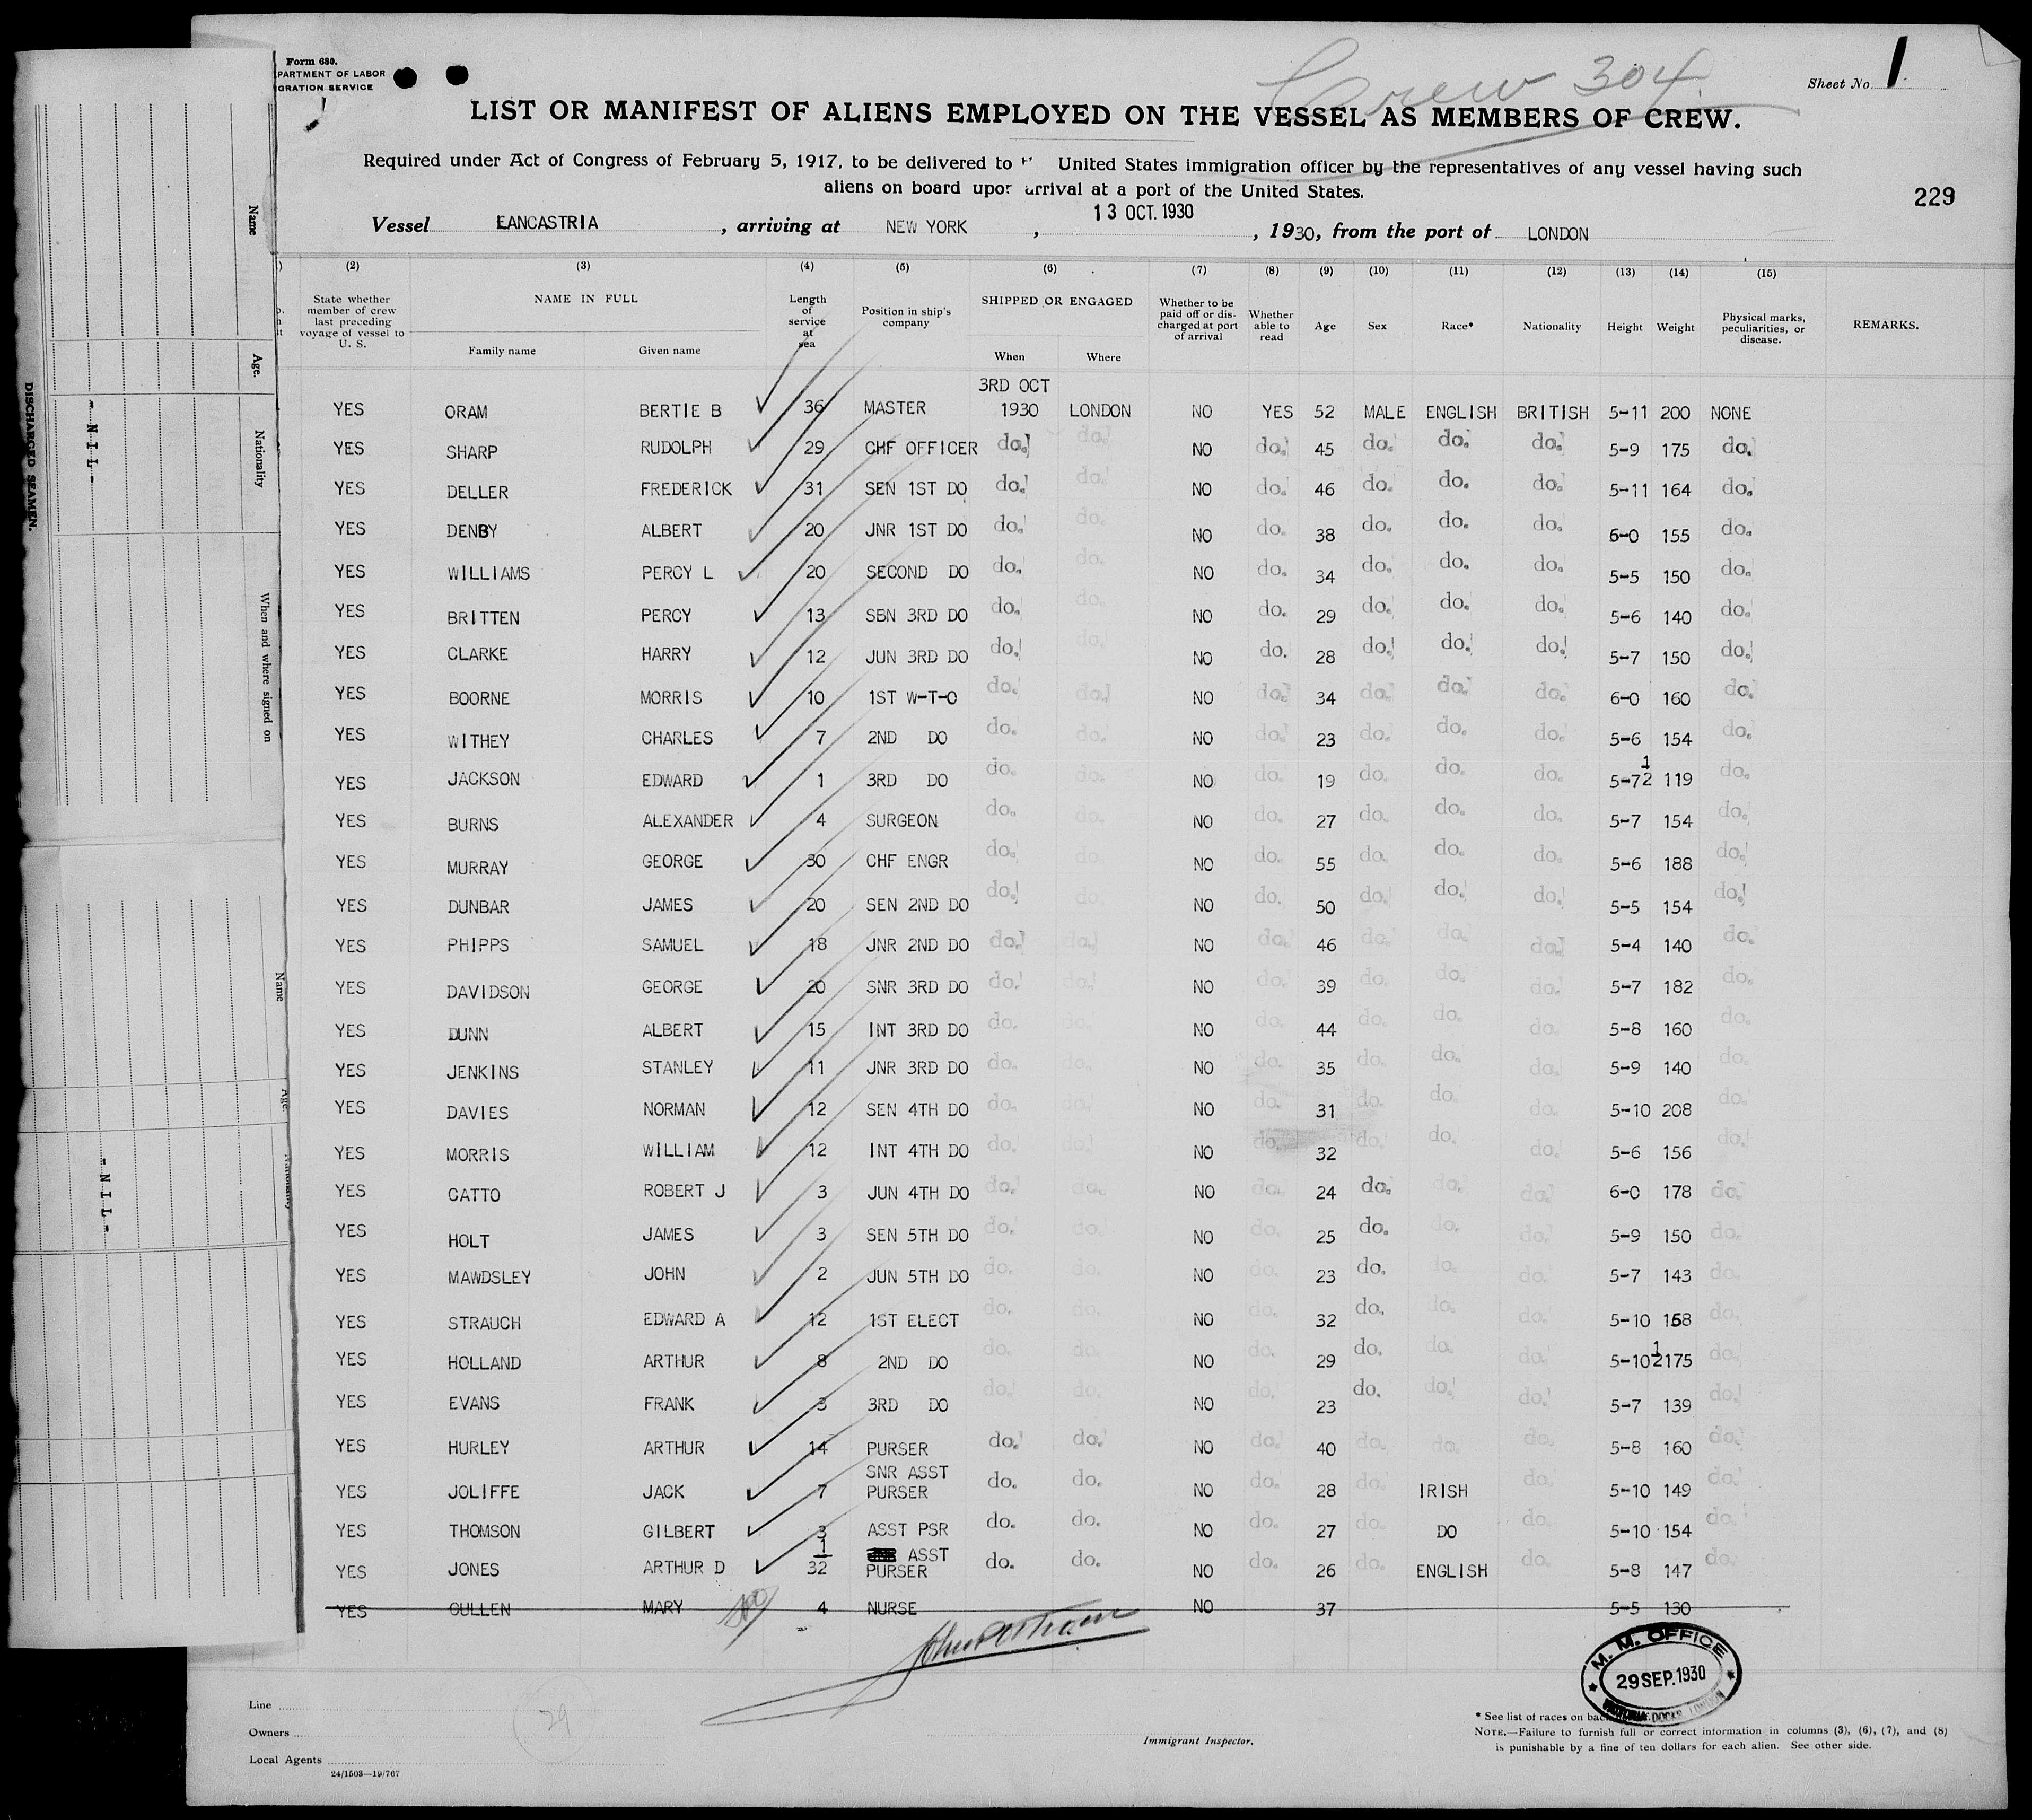 Form 680.
PARTMENT OF LABOR
GRATION SERVICE
Crew 304
Sheet No. 1
LIST OR MANIFEST OF ALIENS EMPLOYED ON THE VESSEL AS MEMBERS OF CREW.
Required under Act of Congress of February 5, 1917, to be delivered to United States immigration officer by the representatives of any vessel having such
aliens on board upon arrival at a port of the United States.
229
Vessel LANCASTRIA, arriving at NEW YORK, 13 OCT. 1930, 1930, from the port of LONDON
(2) (3) (4) (5) (6) (7) (8) (9) (10) (11) (12) (13) (14) (15)
State whether member of crew last preceding voyage of vessel to U. S.
NAME IN FULL
Family name Given name
Length of service at sea
Position in ship's company
SHIPPED OR ENGAGED
When Where
Whether to be paid off or discharged at port of arrival
Whether able to read
Age Sex Race* Nationality Height Weight
Physical marks, peculiarities, or disease.
REMARKS.
3RD OCT
YES ORAM BERTIE B 36 MASTER 1930 LONDON NO YES 52 MALE ENGLISH BRITISH 5-11 200 NONE
YES SHARP RUDOLPH 29 CHF OFFICER do. do. NO do. 45 do. do. do. 5-9 175 do.
YES DELLER FREDERICK 31 SEN 1ST DO do. do. NO do. 46 do. do. do. 5-11 164 do.
YES DENBY ALBERT 20 JNR 1ST DO do. do. NO do. 38 do. do. do. 6-0 155 do.
YES WILLIAMS PERCY L 20 SECOND DO do. do. NO do. 34 do. do. do. 5-5 150 do.
YES BRITTEN PERCY 13 SBN 3RD DO do. do. NO do. 29 do. do. do. 5-6 140 do.
YES CLARKE HARRY 12 JUN 3RD DO do. do. NO do. 28 do. do. do. 5-7 150 do.
YES BOORNE MORRIS 10 1ST W-T-O do. do. NO do. 34 do. do. do. 6-0 160 do.
YES WITHEY CHARLES 7 2ND DO do. do. NO do. 23 do. do. do. 5-6 154 do.
YES JACKSON EDWARD 1 3RD DO do. do. NO do. 19 do. do. do. 5-7 1/2 119 do.
YES BURNS ALEXANDER 4 SURGEON do. do. NO do. 27 do. do. do. 5-7 154 do.
YES MURRAY GEORGE 30 CHF ENGR do. do. NO do. 55 do. do. do. 5-6 188 do.
YES DUNBAR JAMES 20 SEN 2ND DO do. do. NO do. 50 do. do. do. 5-5 154 do.
YES PHIPPS SAMUEL 18 JNR 2ND DO do. do. NO do. 46 do. do. do. 5-4 140 do.
YES DAVIDSON GEORGE 20 SNR 3RD DO do. do. NO do. 39 do. do. do. 5-7 182 do.
YES DUNN ALBERT 15 INT 3RD DO do. do. NO do. 44 do. do. do. 5-8 160 do.
YES JENKINS STANLEY 11 JNR 3RD DO do. do. NO do. 35 do. do. do. 5-9 140 do.
YES DAVIES NORMAN 12 SEN 4TH DO do. do. NO do. 31 do. do. do. 5-10 208 do.
YES MORRIS WILLIAM 12 INT 4TH DO do. do. NO do. 32 do. do. do. 5-6 156 do.
YES CATTO ROBERT J 3 JUN 4TH DO do. do. NO do. 24 do. do. do. 6-0 178 do.
YES HOLT JAMES 3 SEN 5TH DO do. do. NO do. 25 do. do. do. 5-9 150 do.
YES MAWDSLEY JOHN 2 JUN 5TH DO do. do. NO do. 23 do. do. do. 5-7 143 do.
YES STRAUCH EDWARD A 12 1ST ELECT do. do. NO do. 32 do. do. do. 5-10 158 do.
YES HOLLAND ARTHUR 8 2ND DO do. do. NO do. 29 do. do. do. 5-10 1/2 175 do.
YES EVANS FRANK 3 3RD DO do. do. NO do. 23 do. do. do. 5-7 139 do.
YES HURLEY ARTHUR 14 PURSER do. do. NO do. 40 do. do. do. 5-8 160 do.
SNR ASST
YES JOLIFFE JACK 7 PURSER do. do. NO do. 28 do. IRISH do. 5-10 149 do.
YES THOMSON GILBERT 3 ASST PSR do. do. NO do. 27 do. DO do. 5-10 154 do.
1 ASST
YES JONES ARTHUR D 32 PURSER do. do. NO do. 26 do. ENGLISH do. 5-8 147 do.
YES CULLEN MARY 4 NURSE NO 37 5-5 130
M. M. OFFICE
29 SEP. 1930
VICTORIA DOCKS, LONDON
29
Line
Owners
Local Agents
24/1508—19/767
Immigrant Inspector.
* See list of races on back
NOTE.—Failure to furnish full or correct information in columns (3), (6), (7), and (8)
is punishable by a fine of ten dollars for each alien. See other side.
DISCHARGED SEAMEN.
Name
Age.
Nationality
When and where signed on
- N I L -
Name
Age.
- N I L -